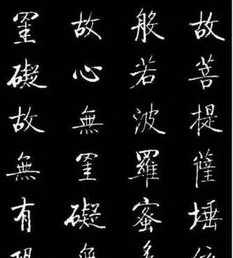 故菩提薩埵
般若波羅蜜
故心無罣礙
罣礙故無有